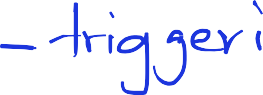 - triggeri